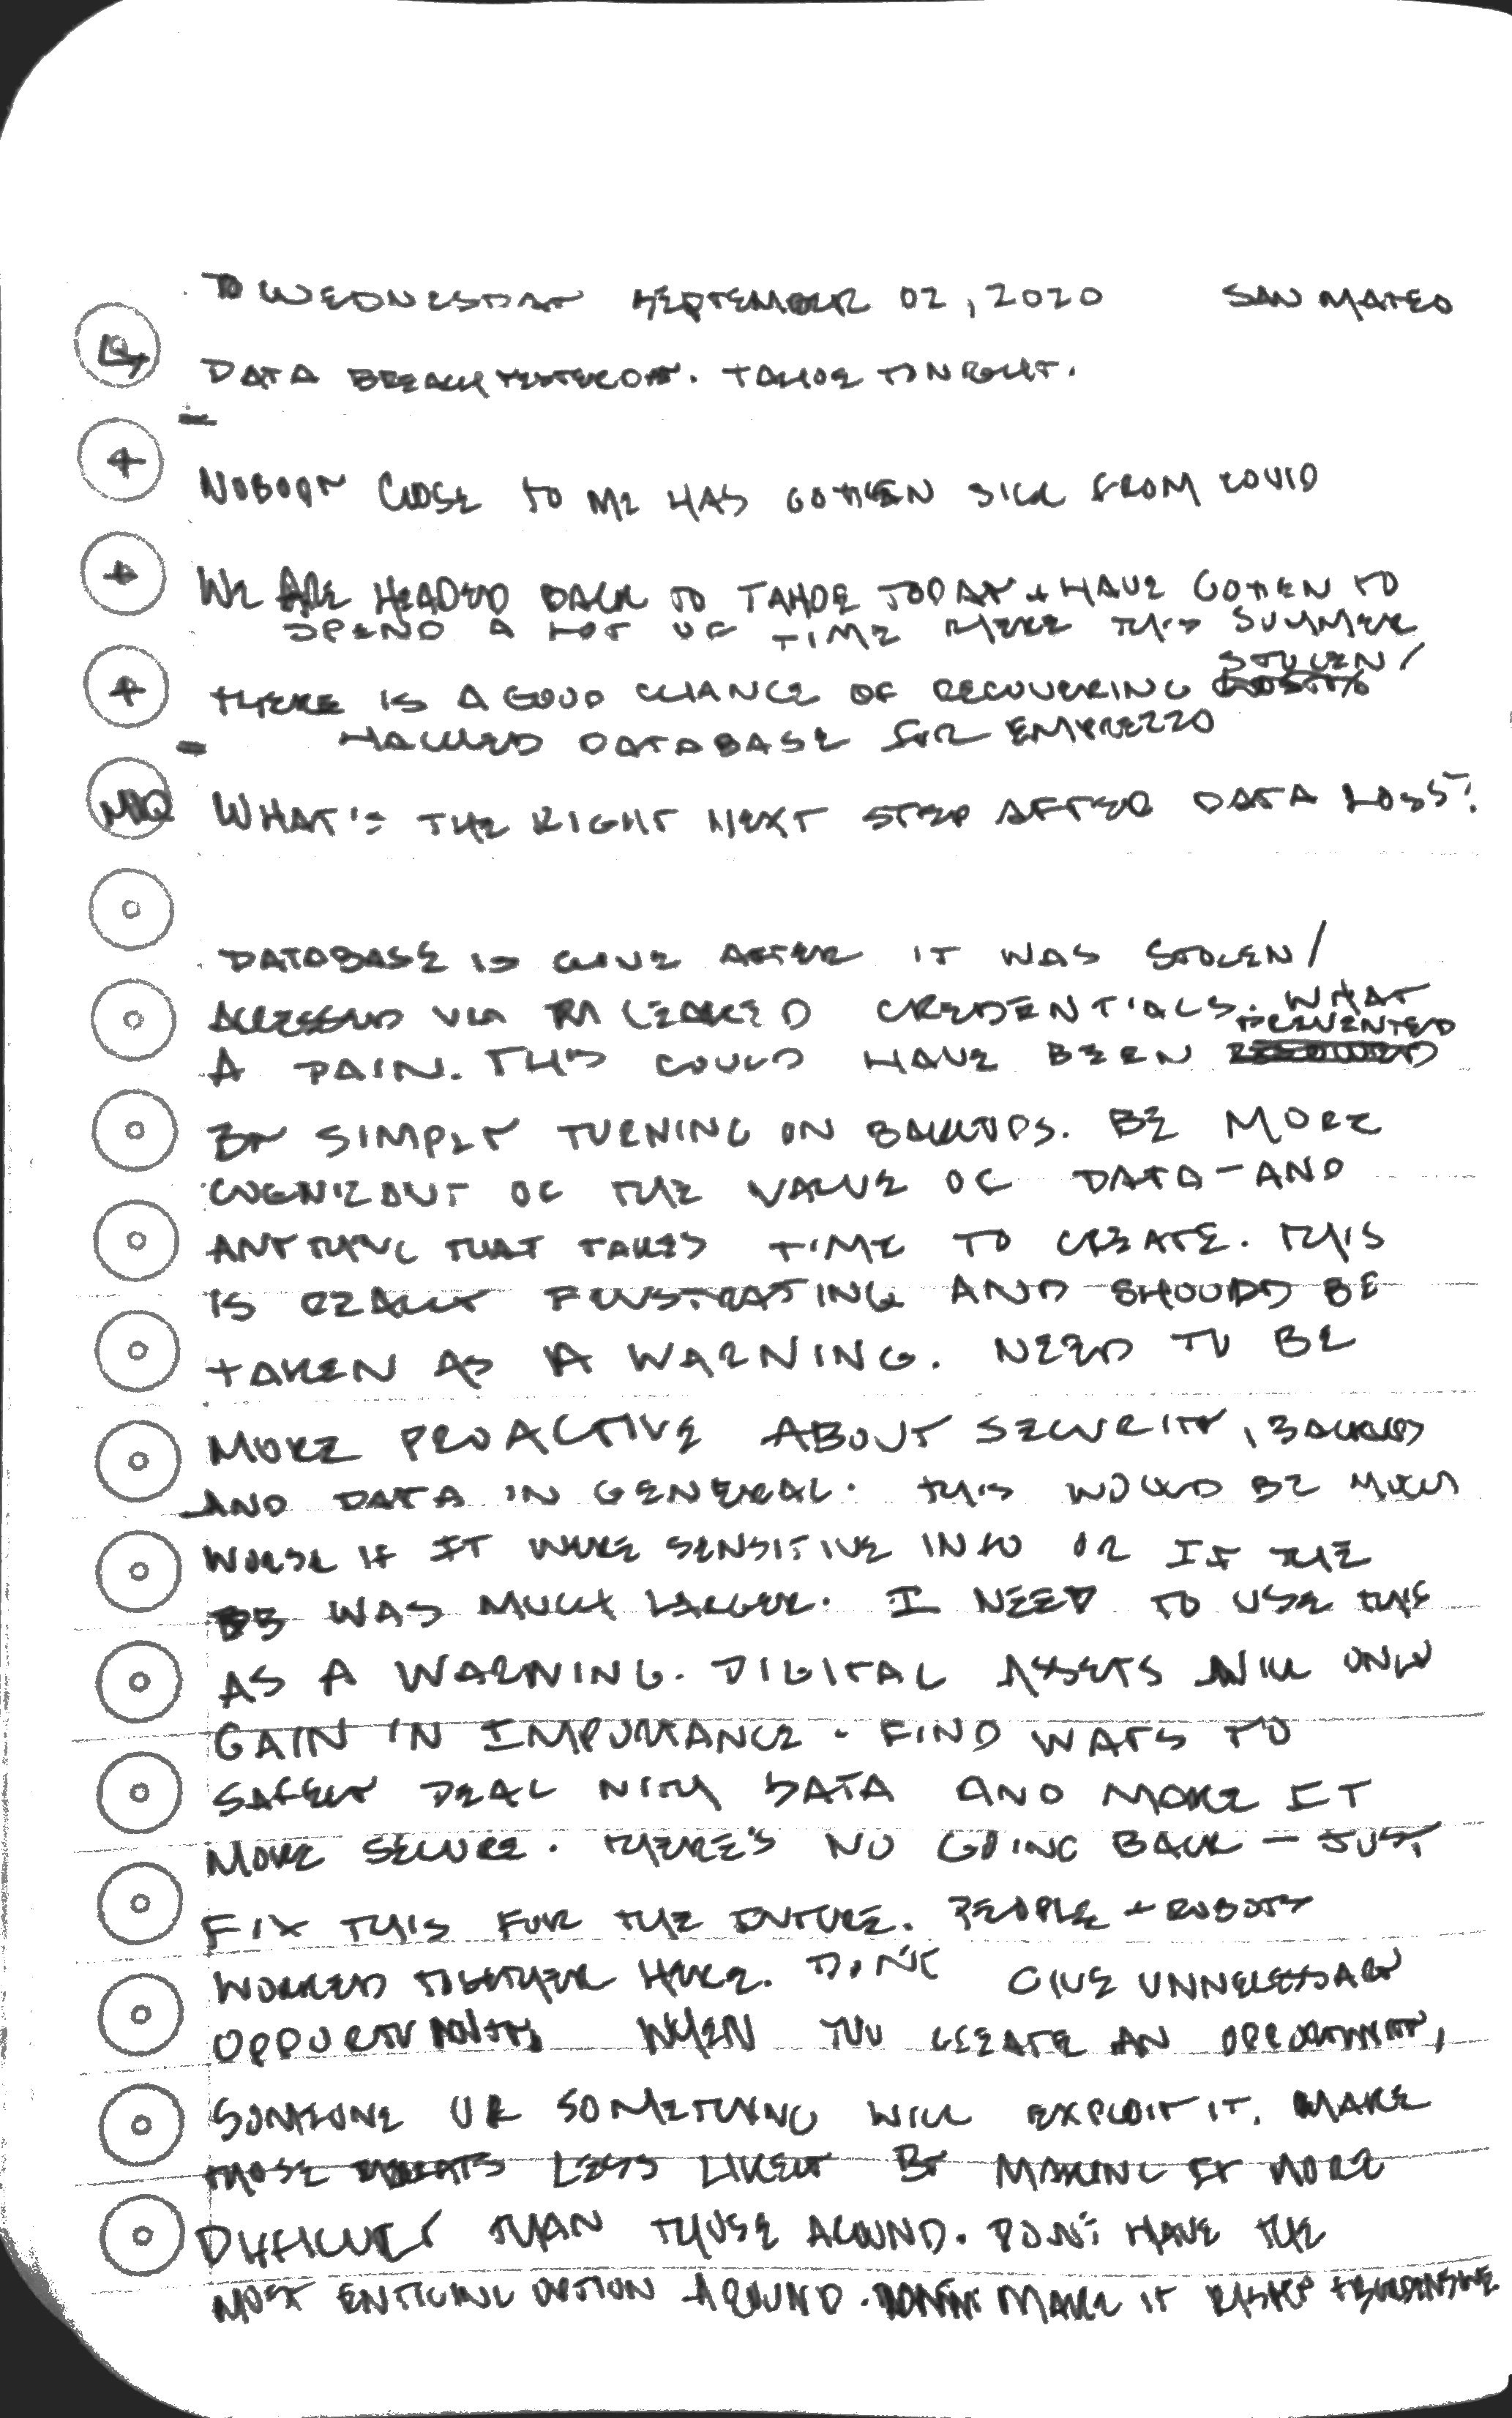 WEDNESDAY SEPTEMBER 02, 2020 SAN MATEO
DATA BREACH YESTERDAY. TAHOE TONIGHT.
+ NOBODY CLOSE TO ME HAS GOTTEN SICK FROM COVID
+ WE ARE HEADED BACK TO TAHOE TODAY + HAVE GOTTEN TO
SPEND A LOT OF TIME THERE THIS SUMMER
STOLEN/
+ THERE IS A GOOD CHANCE OF RECOVERING
HACKED DATABASE FOR EMPREZZO
MIQ WHAT'S THE RIGHT NEXT STEP AFTER DATA LOSS?
DATABASE IS GONE AFTER IT WAS STOLEN/
ACCESSED VIA LEAKED CREDENTIALS. WHAT
PREVENTED
A PAIN. THIS COULD HAVE BEEN
BY SIMPLY TURNING ON BACKUPS. BE MORE
COGNIZANT OF THE VALUE OF DATA - AND
ANYTHING THAT TAKES TIME TO CREATE. THIS
IS REALLY FRUSTRATING AND SHOULD BE
TAKEN AS A WARNING. NEED TO BE
MORE PROACTIVE ABOUT SECURITY, BACKUPS
AND DATA IN GENERAL. THIS WOULD BE MUCH
WORSE IF IT WERE SENSITIVE INFO OR IF THE
DB WAS MUCH LARGER. I NEED TO USE THIS
AS A WARNING. DIGITAL ASSETS WILL ONLY
GAIN IN IMPORTANCE. FIND WAYS TO
SAFELY DEAL WITH DATA AND MAKE IT
MORE SECURE. THERE'S NO GOING BACK - JUST
FIX THIS FOR THE FUTURE. PEOPLE + ROBOTS
WORKED TOGETHER HERE. DON'T GIVE UNNECESSARY
OPPORTUNITY. WHEN YOU CREATE AN OPPORTUNITY,
SOMEONE OR SOMETHING WILL EXPLOIT IT. MAKE
THOSE THREATS LESS LIKELY BY MAKING IT MORE
DIFFICULT THAN THOSE AROUND. DON'T HAVE THE
MOST ENTICING OPTION AROUND. MAKE IT RISKY + EXPENSIVE